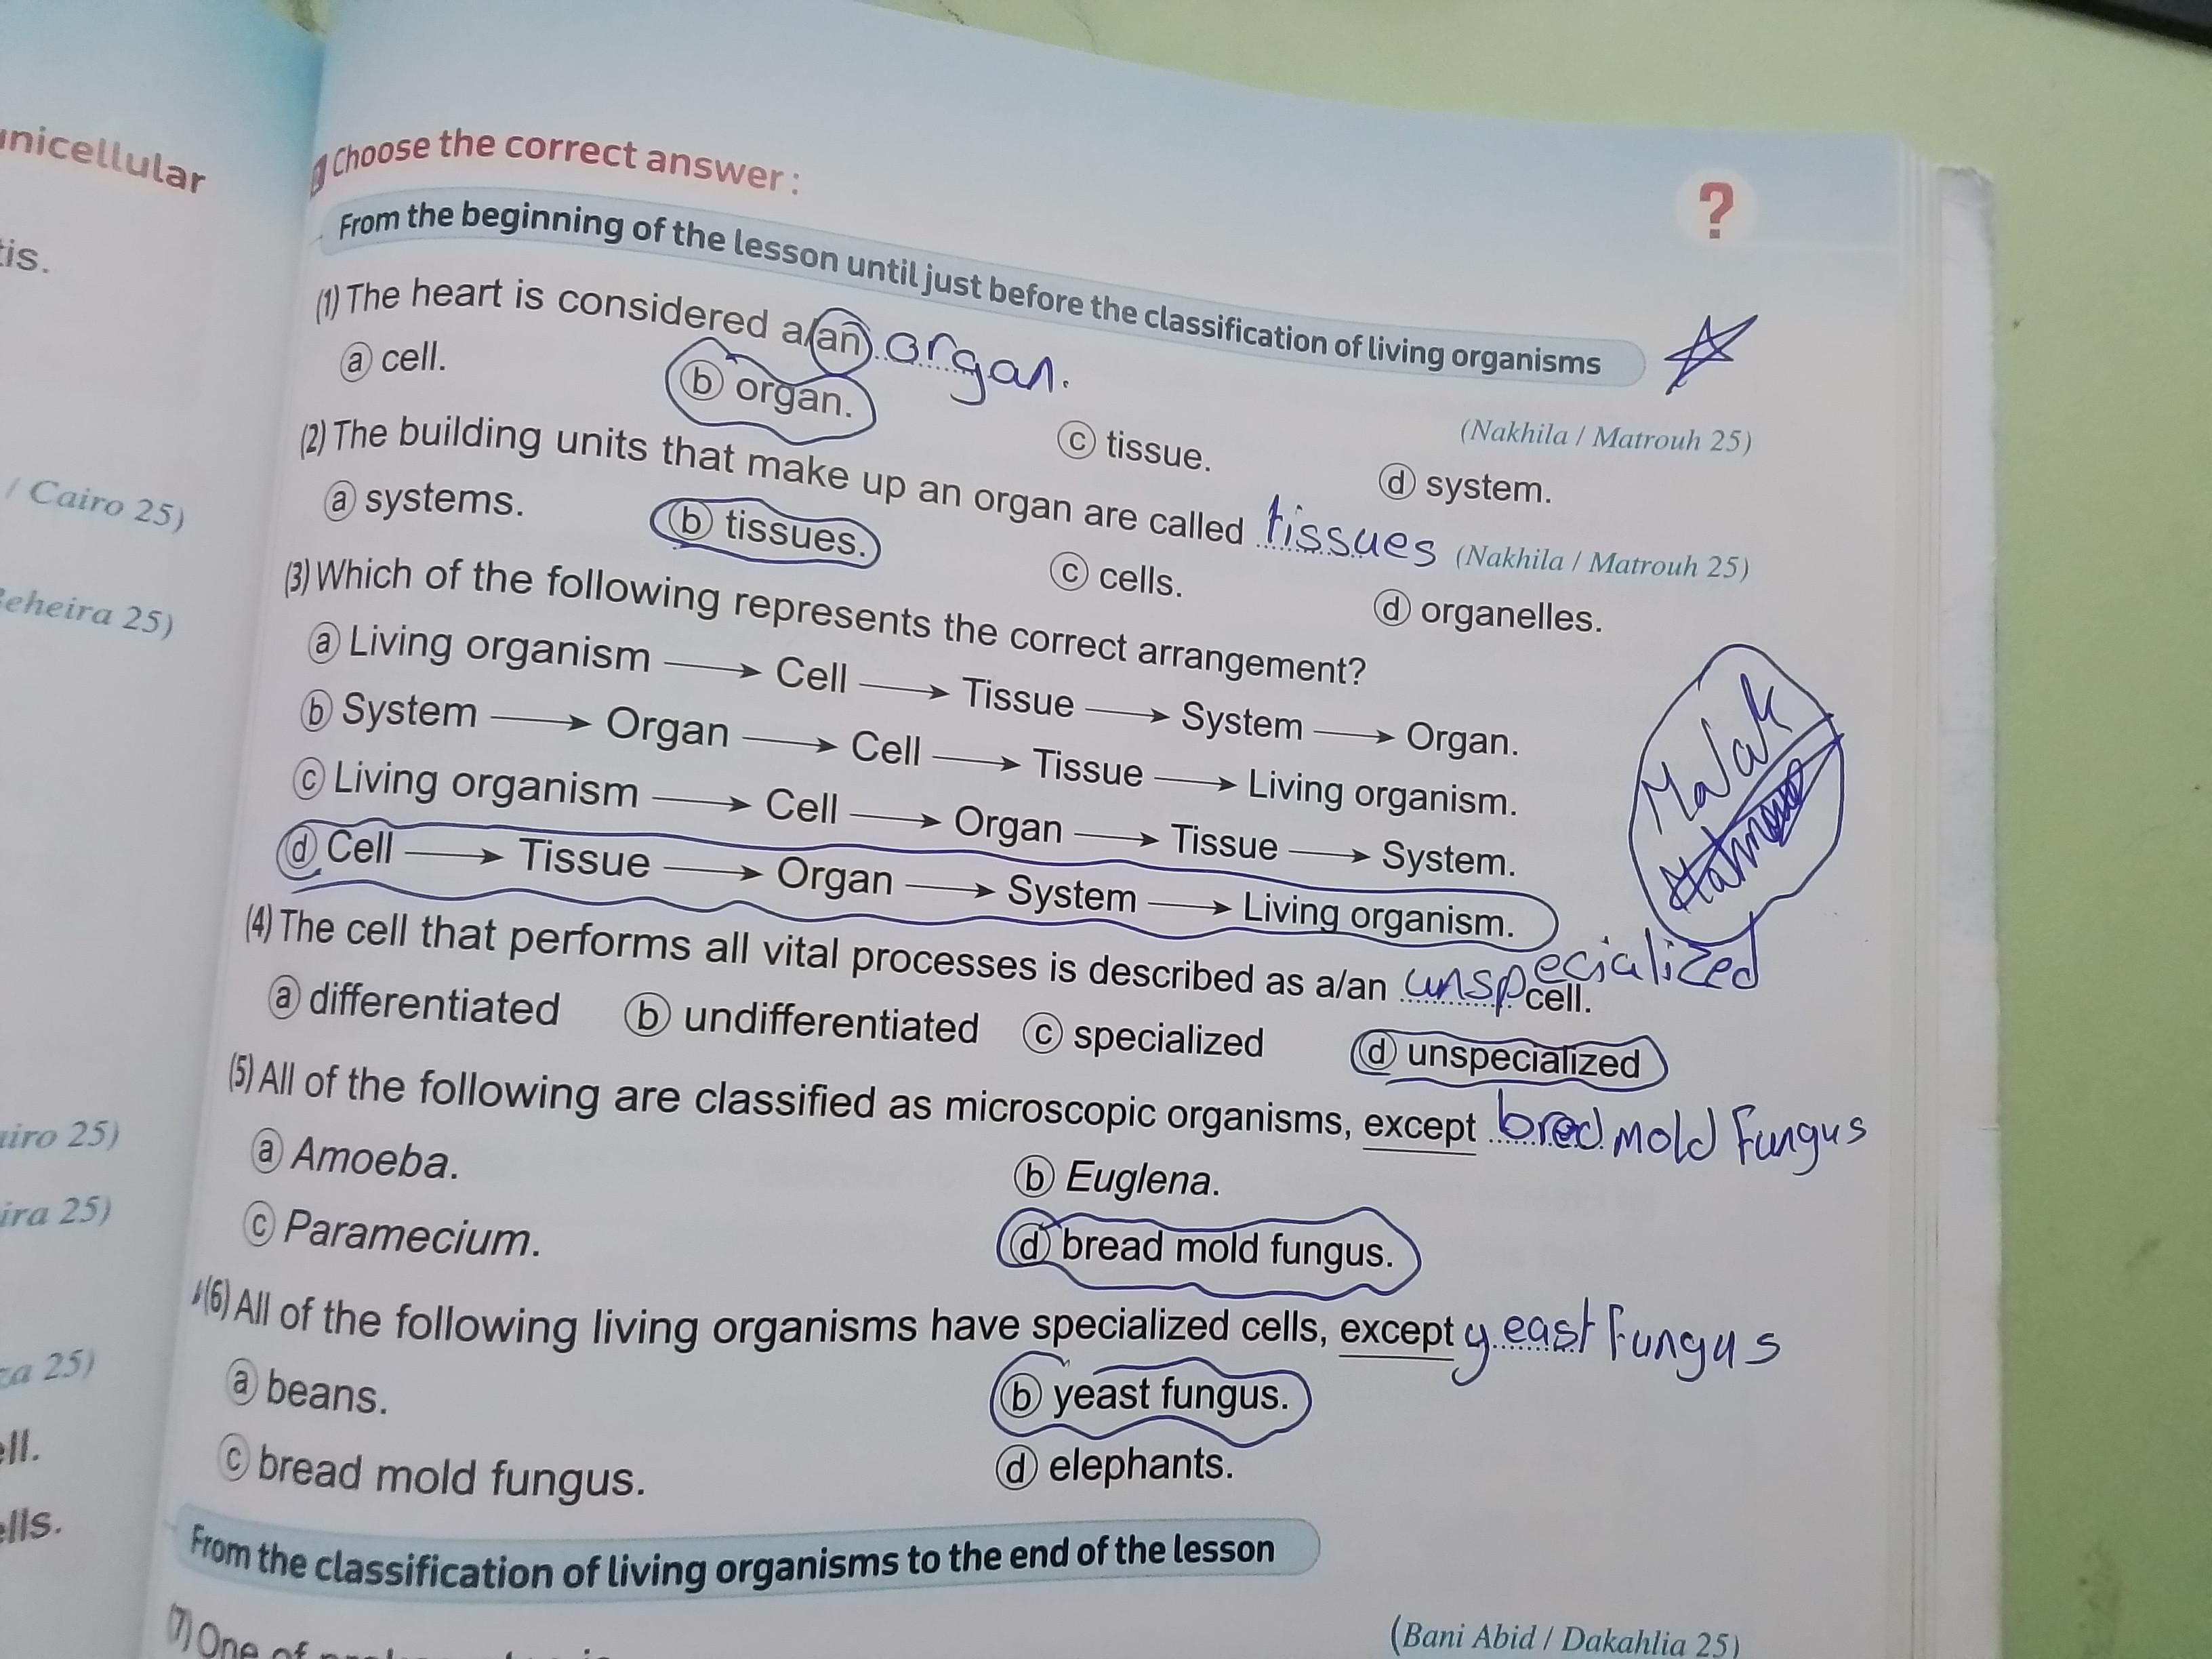 nicellular
tis.
/ Cairo 25)
Beheira 25)
airo 25)
ira 25)
za 25)
ell.
ells.
Choose the correct answer :
?
From the beginning of the lesson until just before the classification of living organisms
(1) The heart is considered a/an organ.
(Nakhila / Matrouh 25)
a cell. b organ. c tissue. d system.
(2) The building units that make up an organ are called tissues (Nakhila / Matrouh 25)
a systems. b tissues. c cells. d organelles.
(3) Which of the following represents the correct arrangement?
a Living organism → Cell → Tissue → System → Organ.
b System → Organ → Cell → Tissue → Living organism.
c Living organism → Cell → Organ → Tissue → System.
d Cell → Tissue → Organ → System → Living organism.
Malak
(4) The cell that performs all vital processes is described as a/an unspecialized cell.
a differentiated b undifferentiated c specialized d unspecialized
(5) All of the following are classified as microscopic organisms, except bred mold Fungus
a Amoeba. b Euglena.
c Paramecium. d bread mold fungus.
(6) All of the following living organisms have specialized cells, except yeast Fungus
a beans. b yeast fungus.
c bread mold fungus. d elephants.
From the classification of living organisms to the end of the lesson
(Bani Abid / Dakahlia 25)
(7) One of